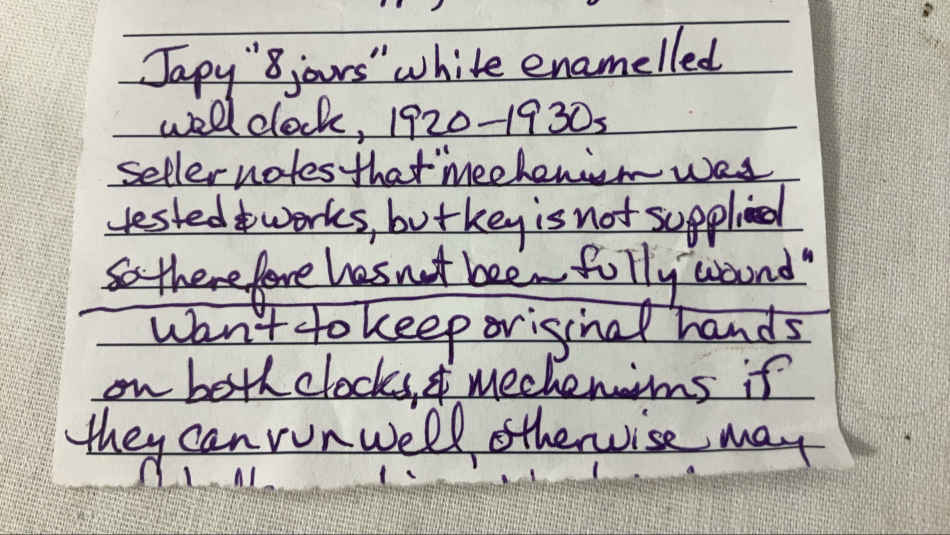 Japy "8 jours" white enamelled
wall clock, 1920-1930s
seller notes that "mechanism was
tested & works, but key is not supplied
so therefore has not been fully wound"
Want to keep original hands
on both clocks, & mechanisms if
they can run well, otherwise may